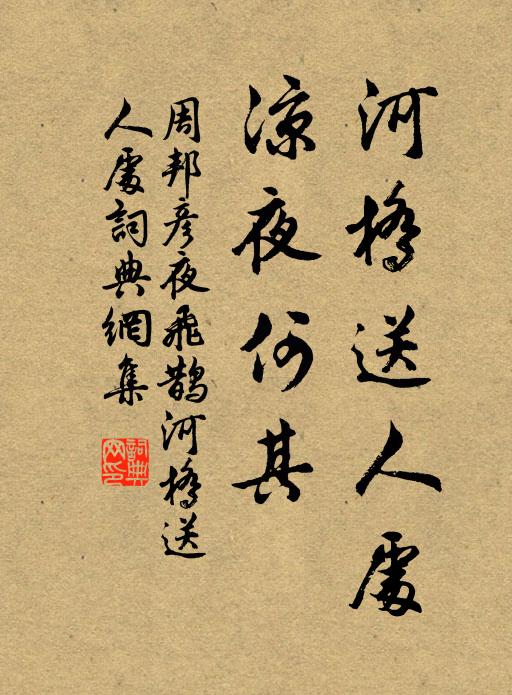 河橋送人處
涼夜何其
周邦彥夜飛鵲河橋送
人處詞典網集
詞典
网印